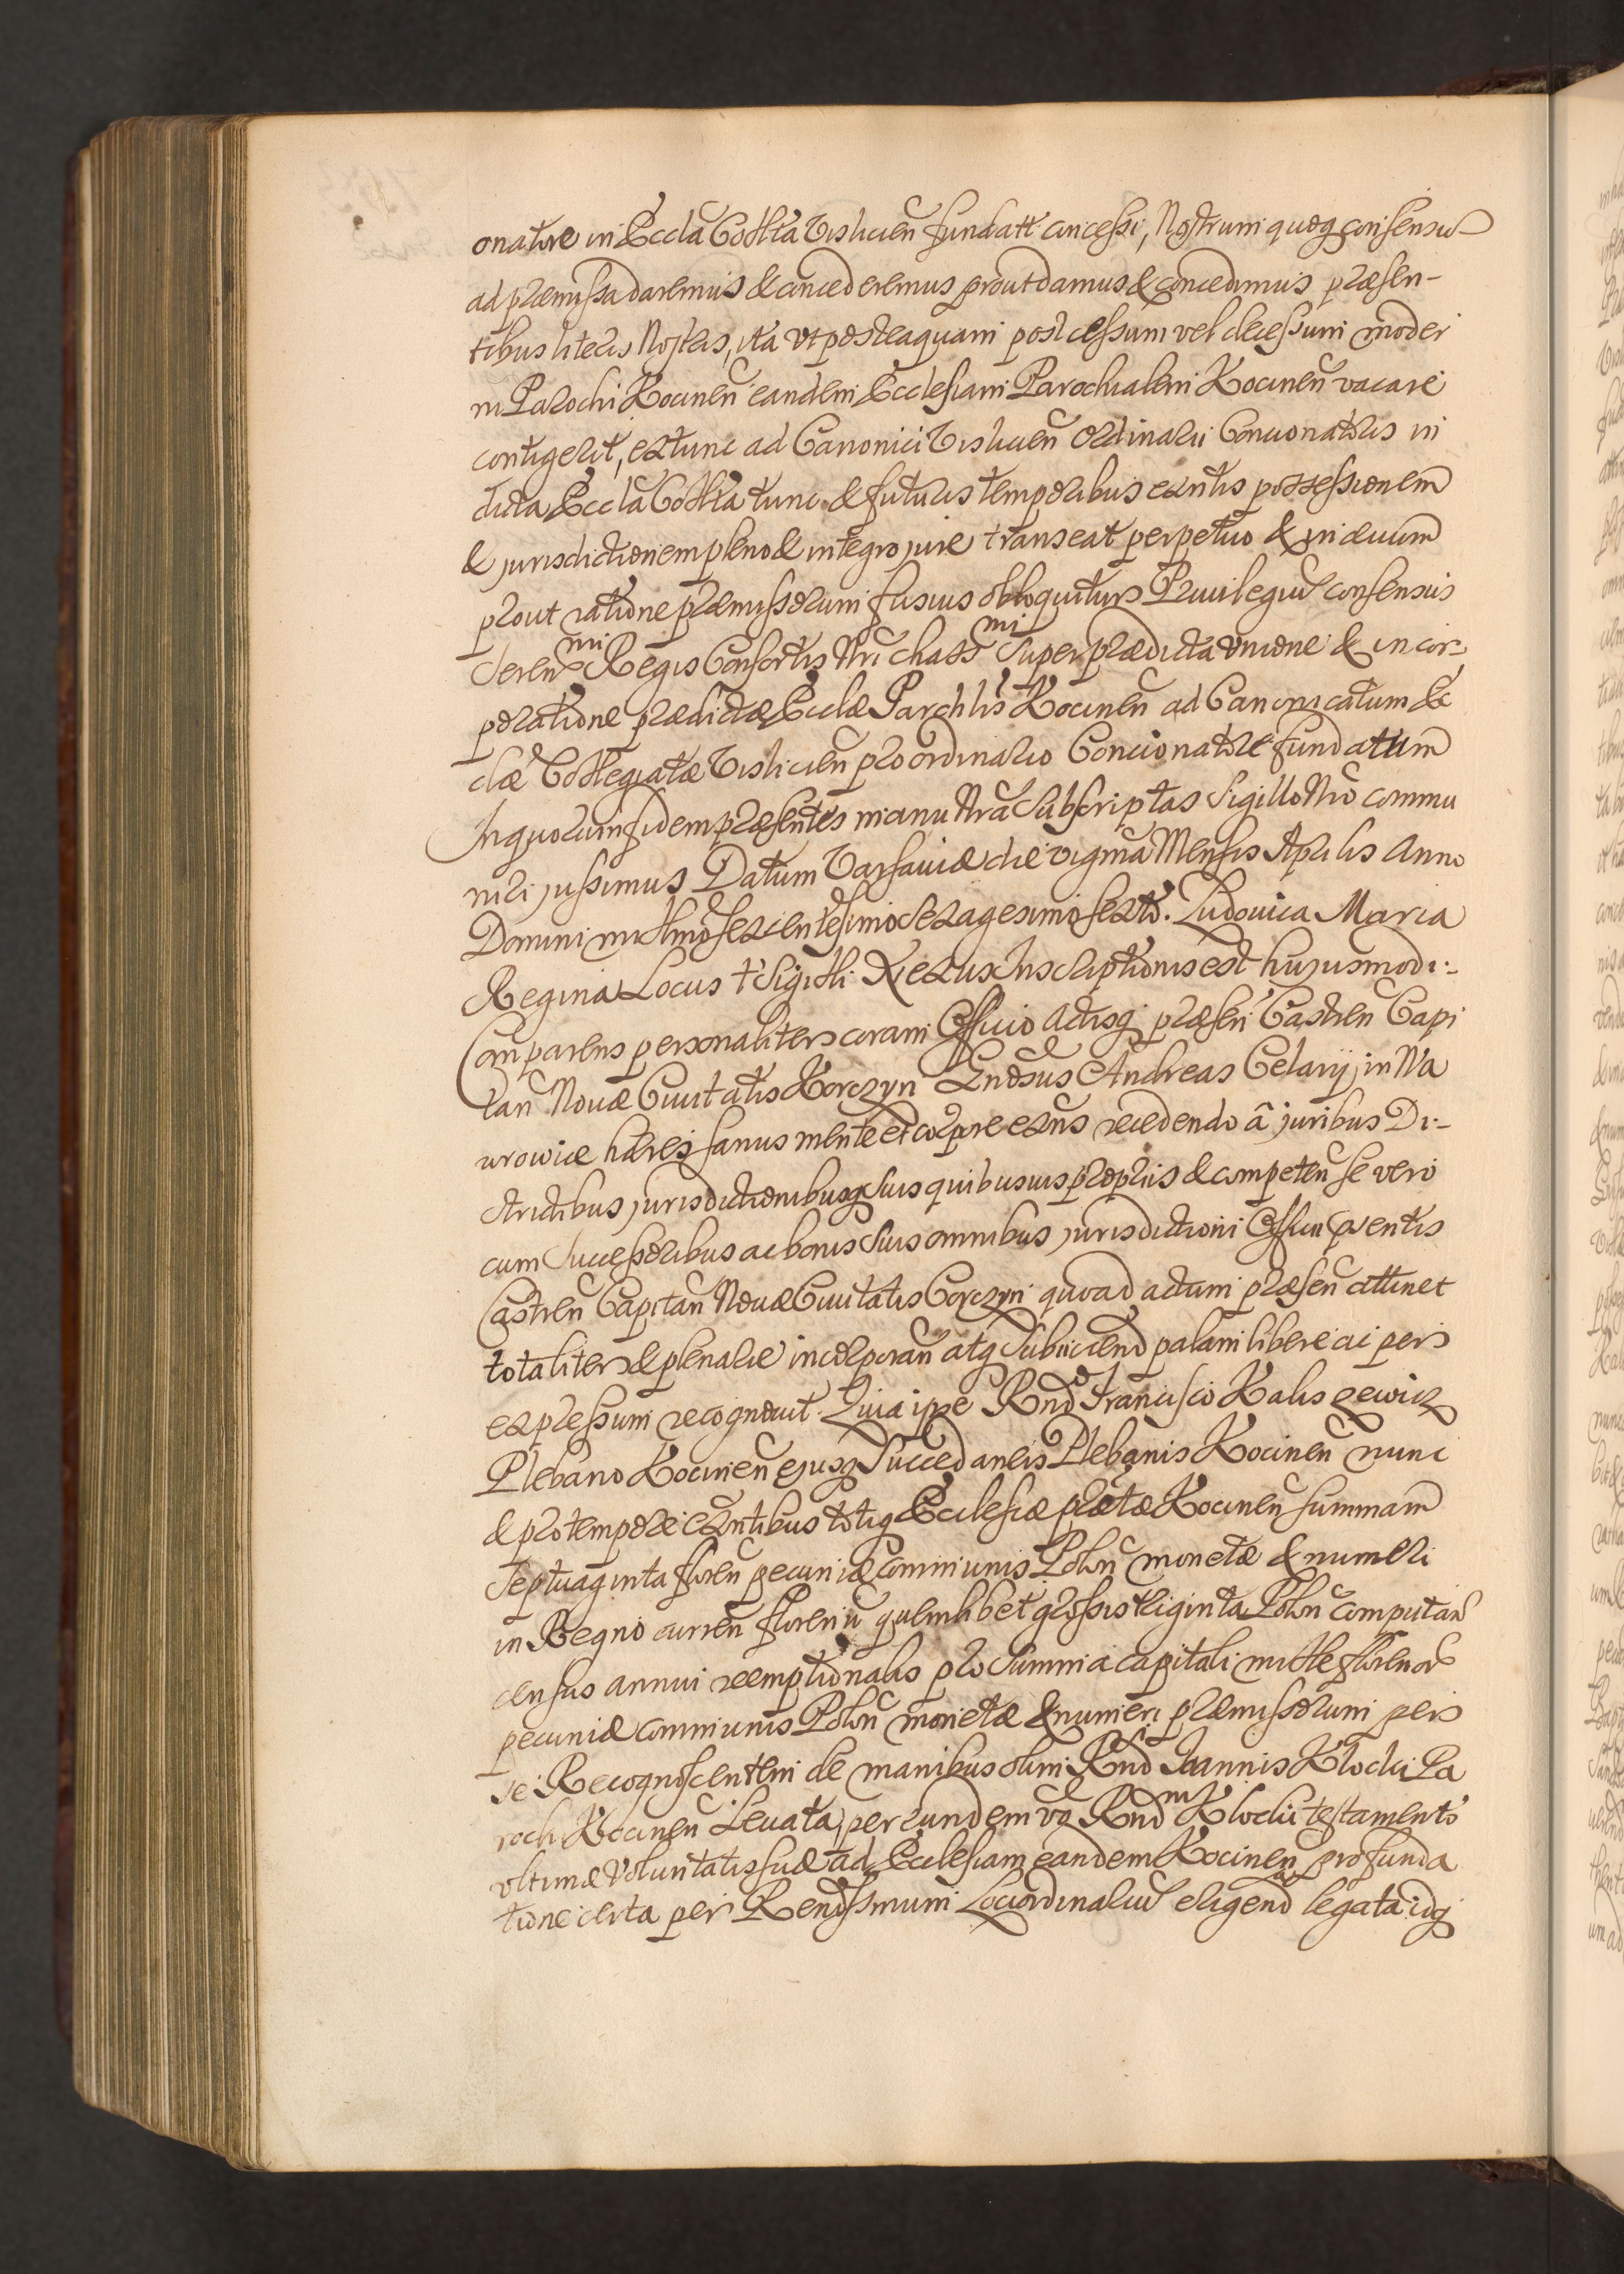 onatore in Eccla Collta Visliciẽn fundatt concessi, Nostrum quoq consensũ
ad præmissa daremus & concederemus prout damus & concedimus præsen-
tibus literis Nostris, ita vt posteaquam post cessum vel decessum moder
ni Parochi Kocinen̄ eandem Ecclesiam Parochialem Kocinen̄ vacare
contigerit, extunc ad Canonici Vislicien̄ Ordinarii Concionatoris in
dicta Eccla Collta tunc & futuris temporibus exntis possessionem
& jurisdictionem pleno & integro jure transeat perpetuo & in æuum
prout ratione præmissorum fusius obloquitur Priuilegiũ consensus
Seren mi Regis Consortis Nri chariss mi super prædicta vnione & incor-
poratione prædictæ Ecclæ Parchlis Kocinen̄ ad Canonicatum Ec
clæ Collegiatæ Vislicien̄ pro ordinario Concionatore fundatum
In quorum fidem præsentes manu Nrã subscriptas Sigillo Nro commu
niri jussimus Datum Varsauiæ die vigma Mensis Aprilis Anno
Domini millmo sexcentesimo sexagesimo sexto. Ludouica Maria
Regina Locus † Sigilli Nexus Inscriptionis est hujusmodi:-
Comparens personaliter coram Officio Actisq præsen̄ Castren̄ Capi
tan̄ Nouæ Ciuitatis Korczyn Gnosus Andreas Celary in Wa
wrowice hæres sanus mente et corpore exns recedendo â juribus Di-
strictibus jurisdictionibusq suis quibusuis proprijs & competen̄ se vero
cum successoribus ac bonis suis omnibus jurisdictioni Officij pntis
Castren̄ Capitan̄ Nouæ Ciuitatis Corczyn quoad actum præsen̄ attinet
totaliter & plenarie incorporan̄ atq subiiciend palam libere ac per
expressum recognouit. Quia ipse Rndo Francisco Kaliszewicz
Plebano Kocinen̄ ejusq Succedaneis Plebanis Kocinen̄ nunc
& pro tempore exntibus totiq Ecclesiæ prætæ Kocinen̄ summam
septuaginta floren̄ pecuniæ communis Polon̄ monetæ & numeri
in Regno curren̄ florenũ quemlibet grossis triginta Polon̄ computan̄
census annui reemptionalis pro summa capitali mille floreno
pecuniæ communis Polon̄ monetæ & numeri præmissorum per
se Recognoscentem de manibus olim Rndi Ioannis Klocki Pa
rochi Kocinen̄ leuata, per eundem vo Rndm Klocki testamento
vltimæ Voluntatis suæ ad Ecclesiam eandem Kocinen̄ pro funda
tione certa per Rendssmum Lociordinariũ eligend legata idq